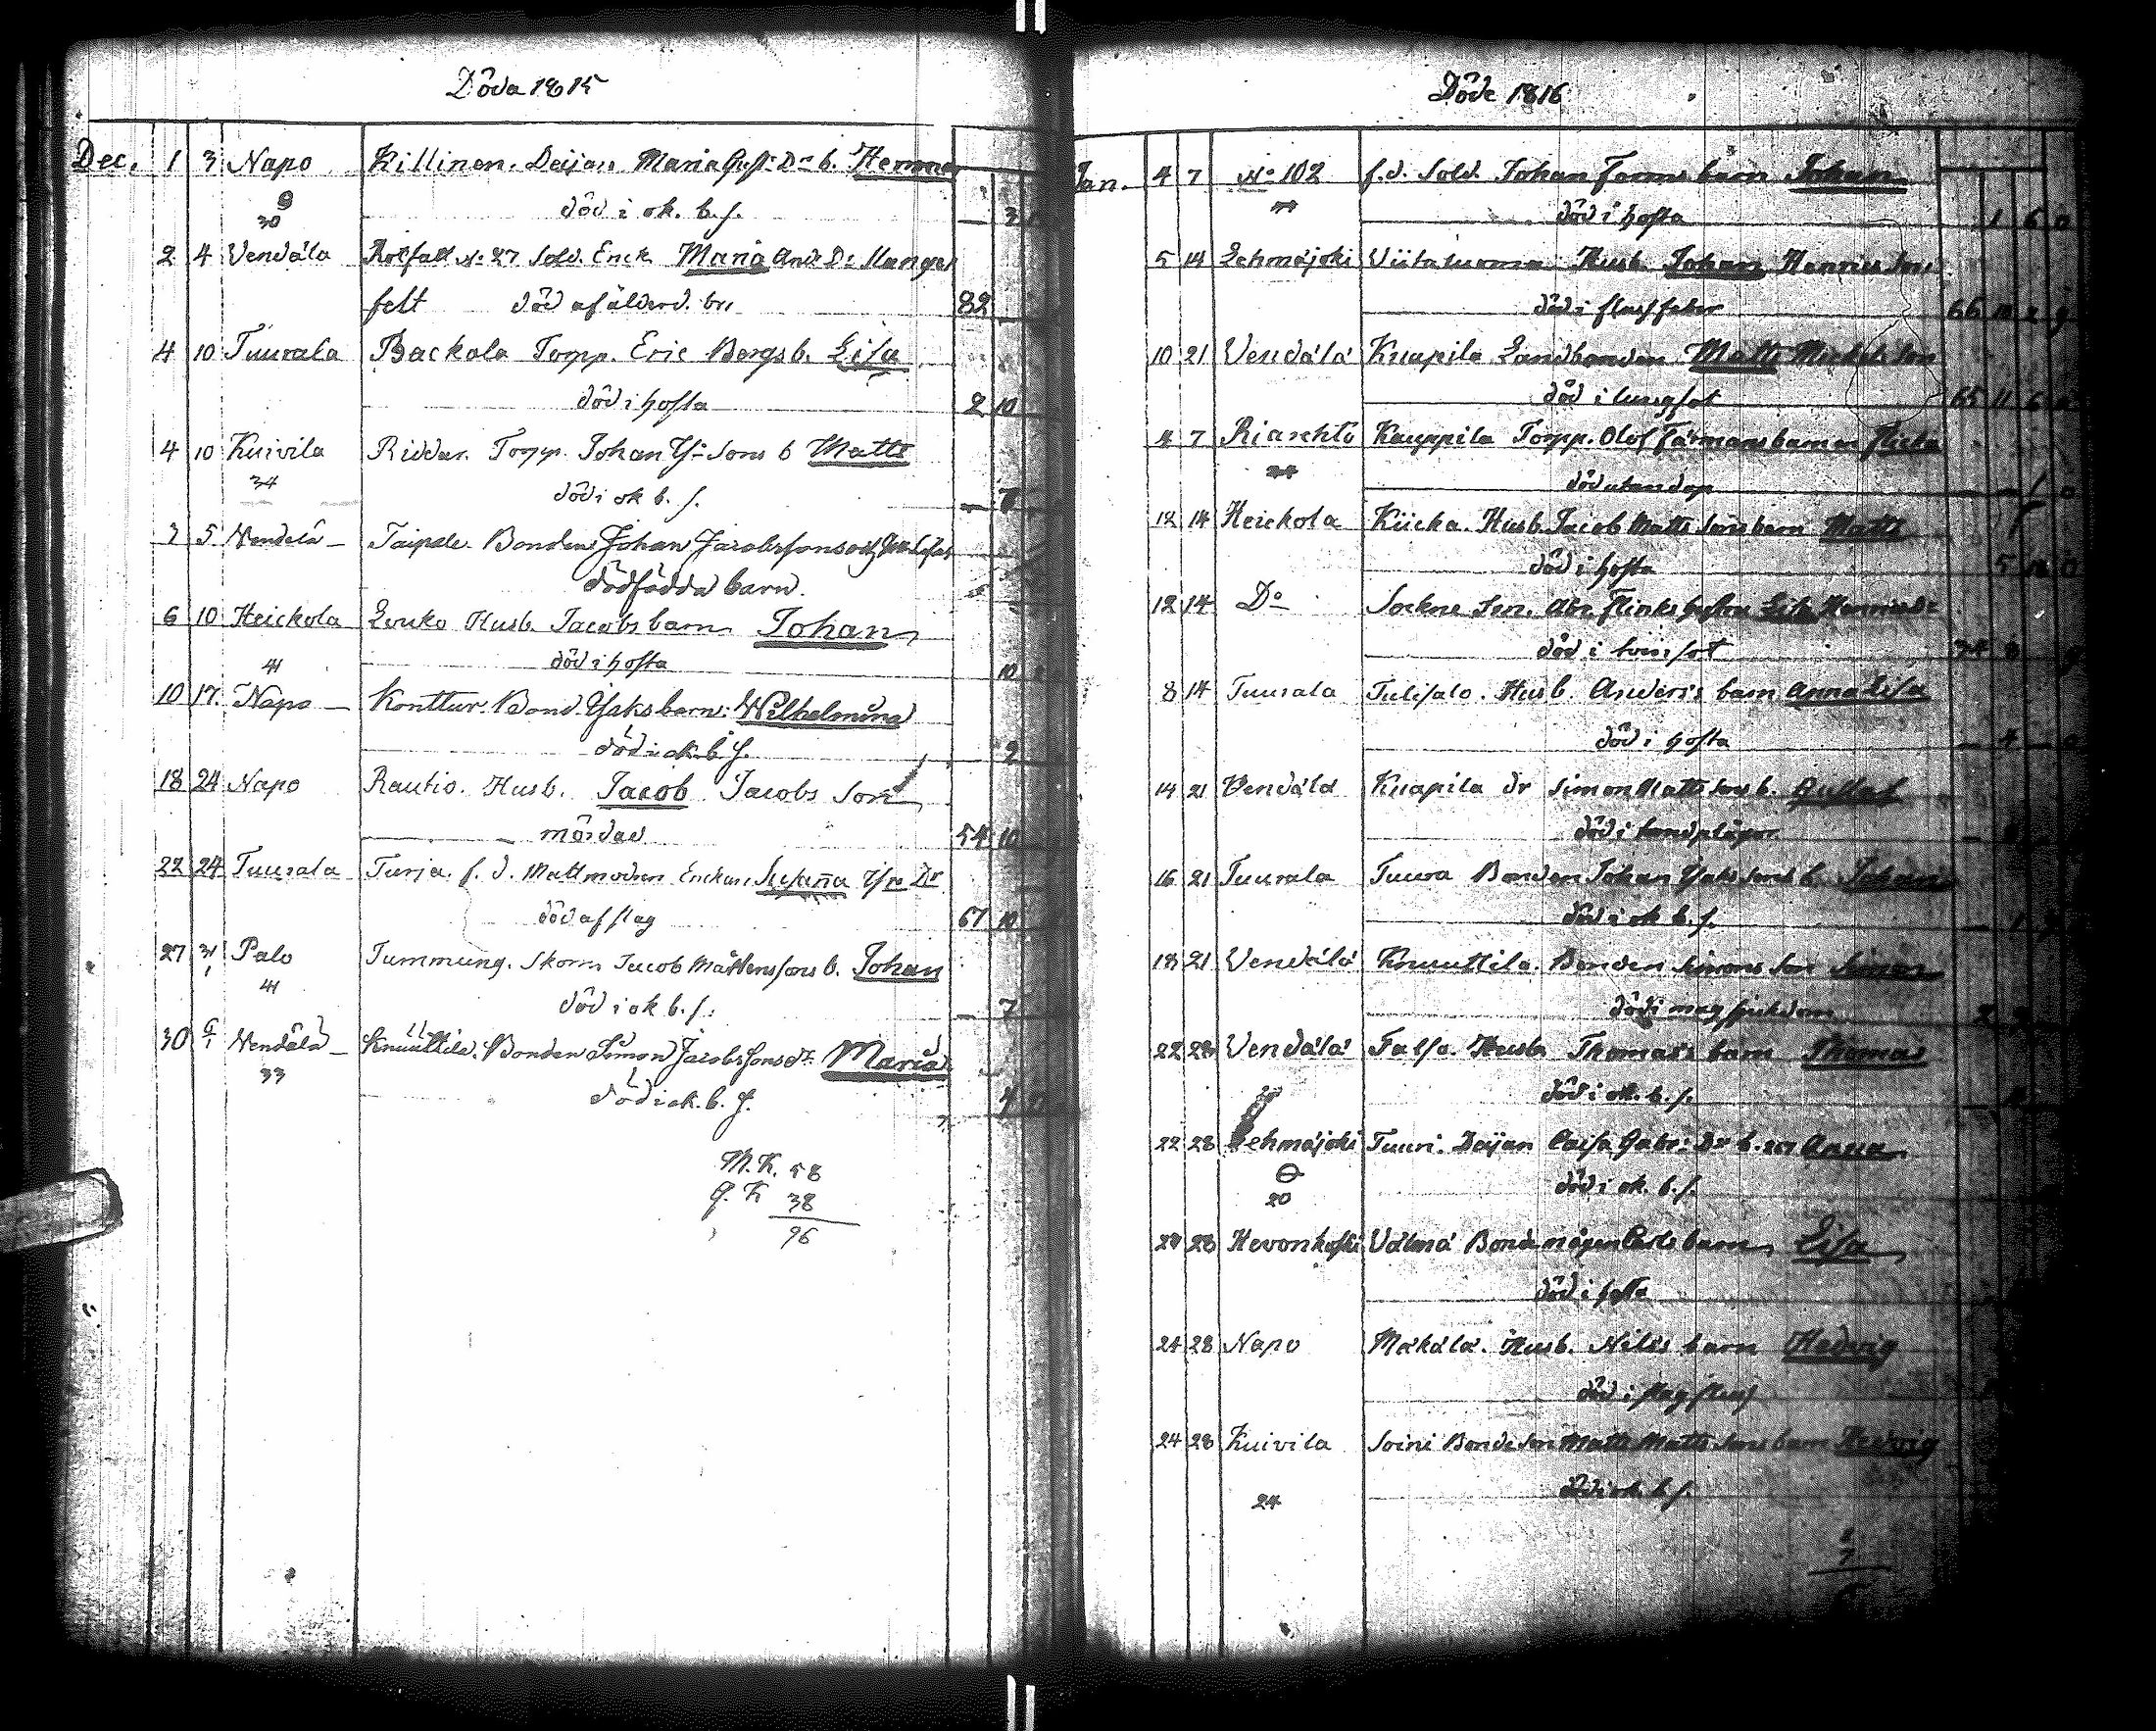 Döda 1815
Dec. 1 3 Napo Killinen. Deijan Maria Gust. Dr b. Herman
9 död i ok. b. s. — 3
30
2 4 Vendälä Rotfatt. No 27 Sold. Enck. Maria And. Dr Manges
felt död af ålderd. br. 82
4 10 Tuurala Backala Torp. Eric Bergs b. Lisa
död i hosta 2 10
4 10 Kuivila Riddar. Torp. Johan Is: Sons b Matts
34 död i ok b. s. — 7
3 5 Wendelä — Taipale. Bonden Johan Jacobssons
dödfödda barn.
6 10 Heickola Louko Husb. Jacobs barn Johan
41 död i hosta 10
10 17. Napo — Konttur. Bond. Isaks barn: Wilhelmina
död i ok. b. s. 2
18 24 Napo Rautio. Husb. Jacob Jacobs Son
mördad 54 10
22 24 Tuurala Turja. f. d. Mattmodren Enckan Susanna Is: Dr
död af slag 67 10
27 31 Palo Tummung. Skom. Jacob Mårtenssons b. Johan
1
41 död i ok b. s. — 7
30 6 Wendälä — Knuuttila. Bonden Simon Jacobssons dr. Maria
1
33 död i ok. b. s. 4
M. K. 58
Q. K 38
96
Döde 1816
Jan. 4 7 No 102 f.d. Sold. Johan Forms barn Johan
död i hosta 1 6 0
5 14 Lehmäjoki Viitaluoma Husb. Johan Henrics Son
död i flussfeber 66 10 2 g
10 21 Vendälä Knapila Landbonden Matts Michels Son
död i lungsot 65 11 6
4 7 Riarchlö Kauppila Torp. Olof Färmans barn en flicka
24 död utan dop — — 1 0
12 14 Heickola Kiicka. Husb. Jacob Matts Sons barn Matts
död i hosta 5 0
12 14 Do Sockne Skr. Abr. Flinks hustru Lisa Henricsdr
död i tvinsot 74 8 g
8 14 Tuurala Tulisalo. Husb. Anders's barn Anna Lisa
död i hosta — 4 — 0
14 21 Vendälä Knapila dr Simon Matts Sons b. Gustaf
död i tandplågor —
16 21 Tuurala Tuura Bonden Johan Isaks Sons b. Johan
död i ok b. s. — 1
18 21 Vendälä Knuuttila. Bonden Simons Son Simon
död i magsjukdom 2
22 28 Vendälä Falso. Husb. Thomas's barn Thomas
död i ok. b. s. —
22 28 Lehmäjoki Tuuri. Deijan Caisa Gabr: Dr b. Anna
20 död i ok. b. s.
24 28 Hevonkoski Välmä Bonde mågen Carls barn Lisa
död i hosta
24 28 Napo Mäkälä. Husb. Nils's barn Hedvig
död i slagfluss
24 28 Kuivila Soini Bonde Son Matts Matts Sons barn Hedvig
24 död i ok. b. s.